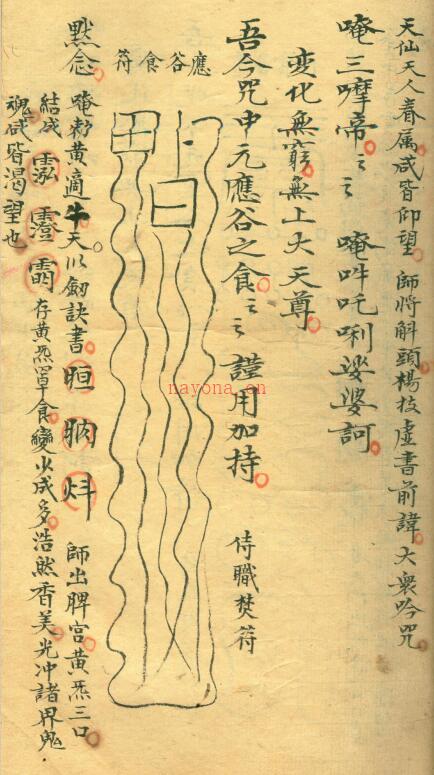 天仙天人眷属咸皆仰望 師將斛頭楊枝虛書前諱 大衆吟咒
唵三摩帝〻〻 唵吽吒唎娑婆訶
変化無窮無上大天尊
吾今咒中元應谷之食〻〻 謹用加持
侍職焚符
應谷食符
黙念 唵勅黄適牛天以劒訣書
師出脾宫黄炁三口
結成
存黄炁罩食變少成多浩然香美光冲諸界鬼
魂咸皆渴望也
nayona.cn